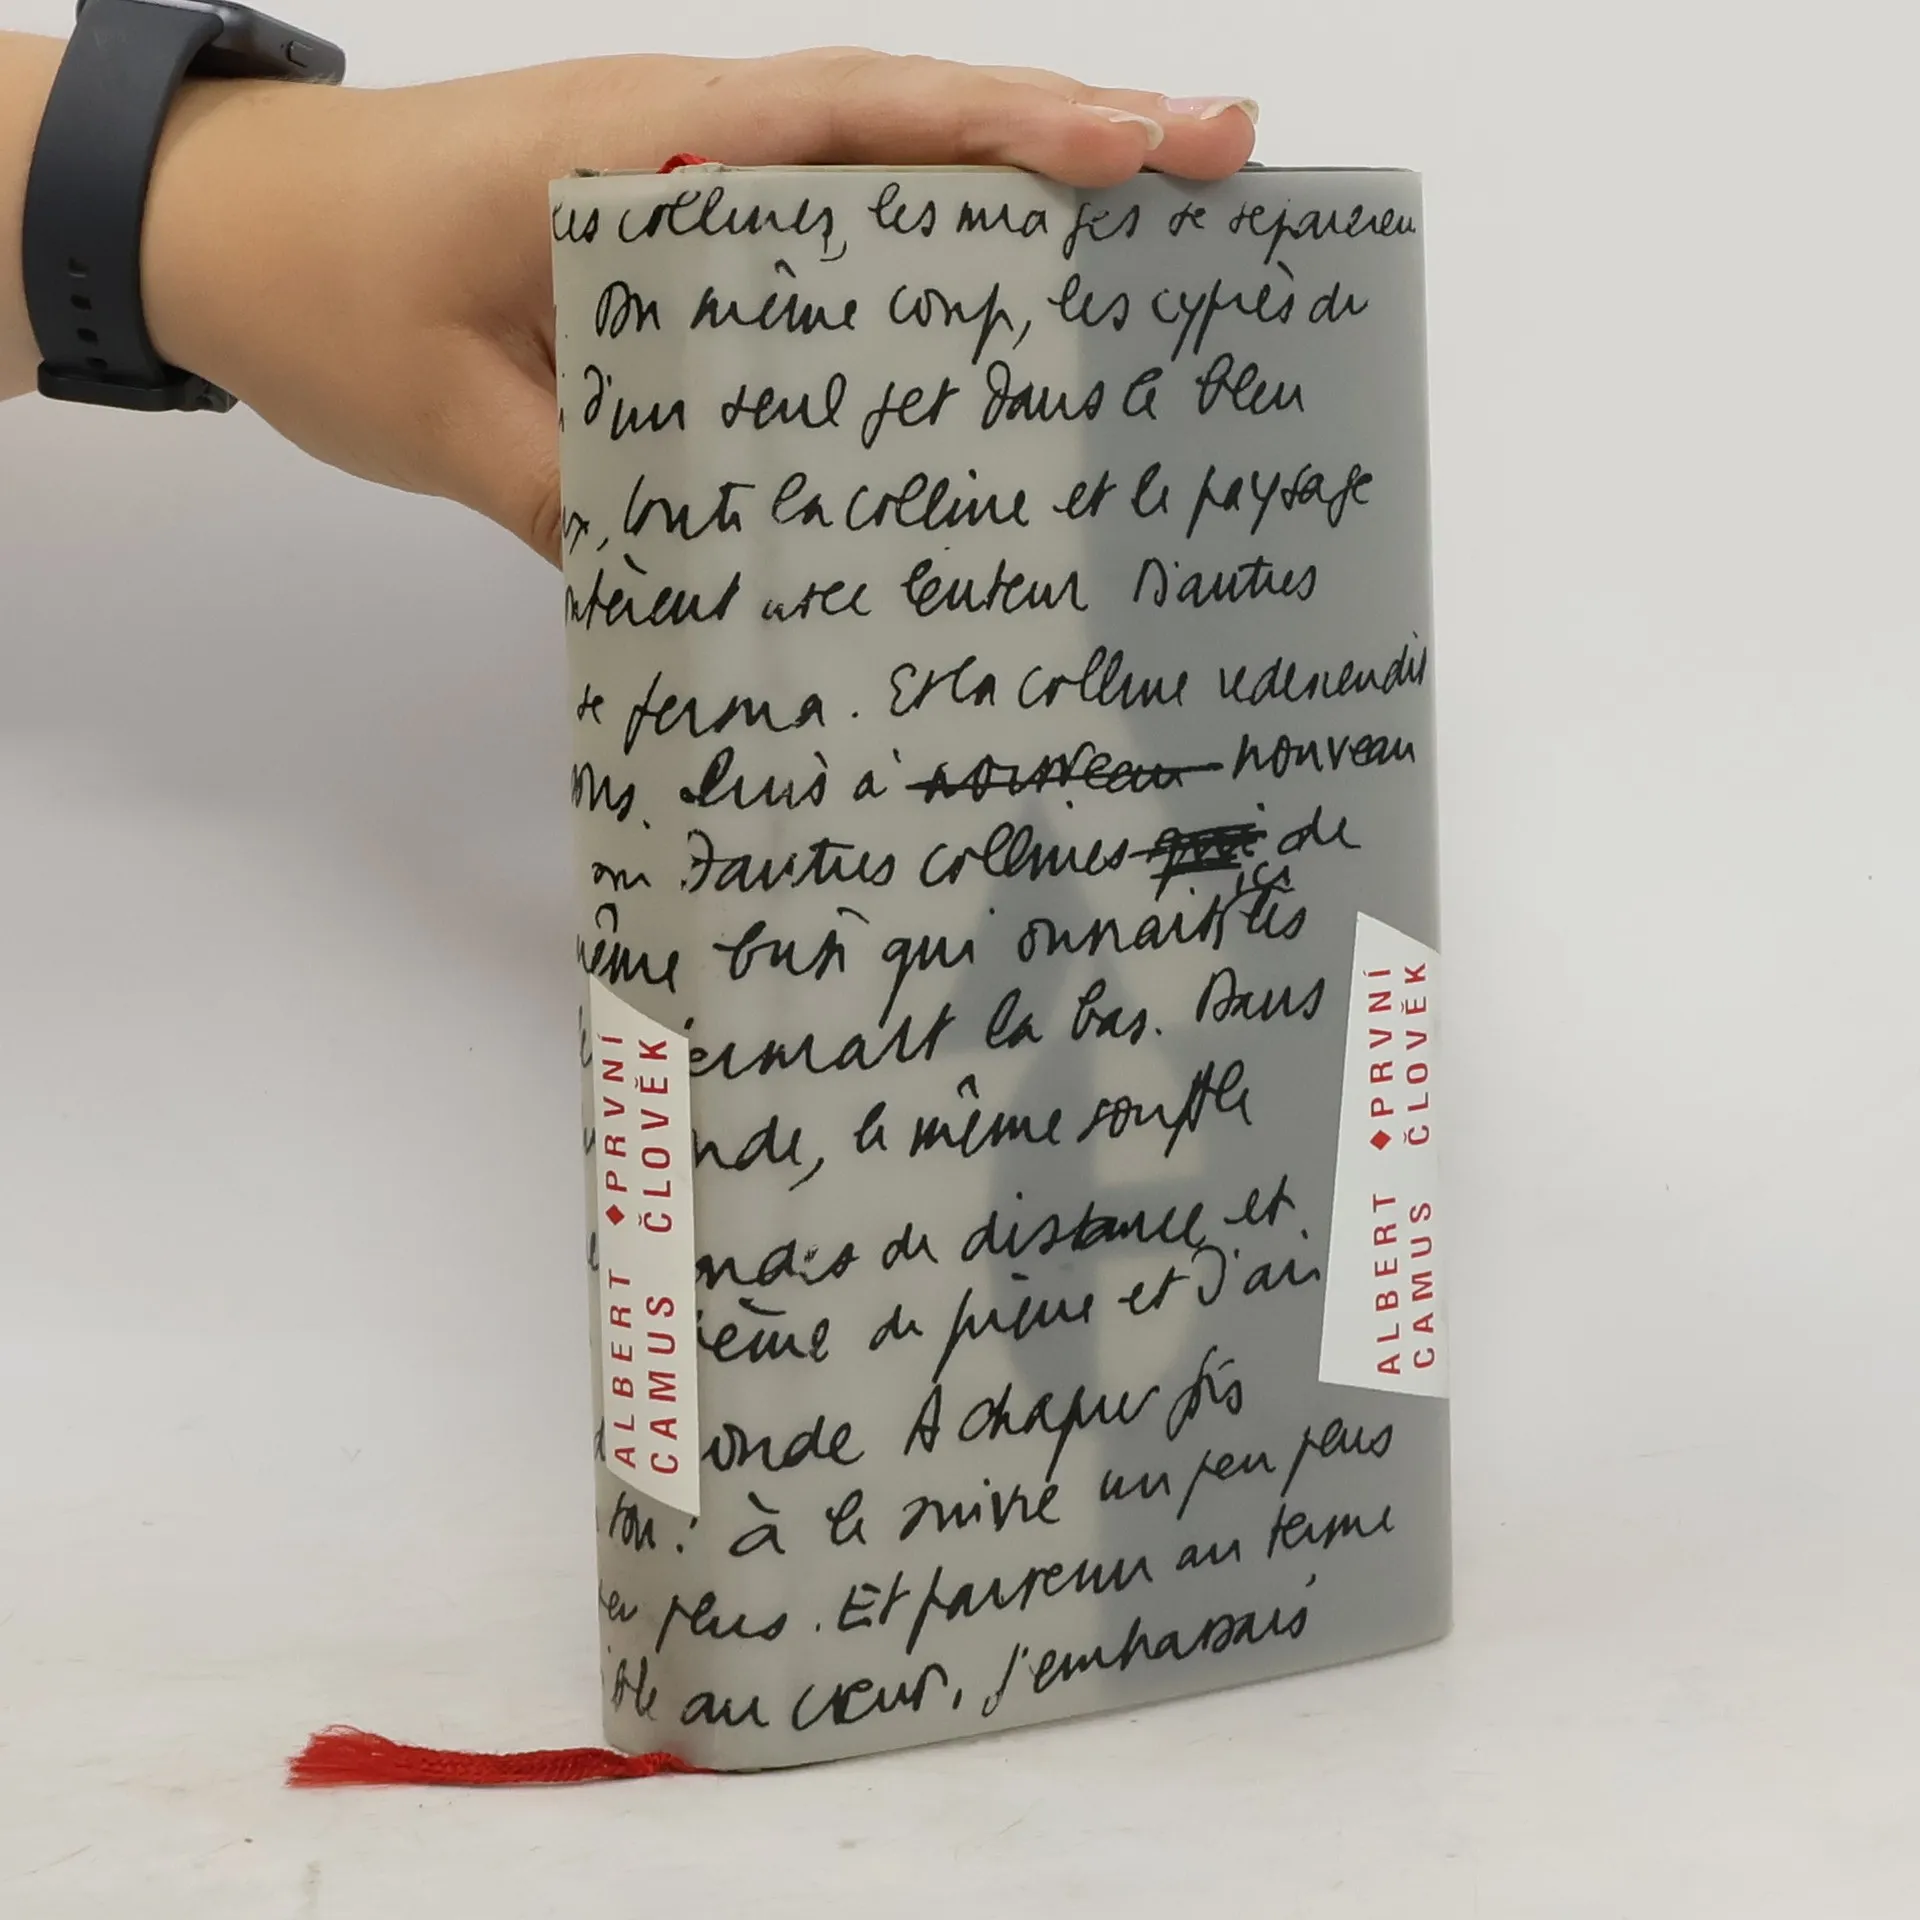 les collines, les nuages se séparèren
Du même coup, les cyprès du
d'un seul jet dans le bleu
, toute la colline et le paysage
ntèrent avec lenteur D'autres
se ferma. Et la colline redescendit
ous. Puis à nouveau nouveau
on D'autres collines qui de
même qui ici les
là bas. Dans
nde, le même souffle
de distance et
ème de et d'ai
onde A chaque fois
ton : à le suivre un peu plus
eu plus. Et parvenu au terme
ible au cœur, j'embrassais
ALBERT ◆PRVNÍ
CAMUS ČLOVĚK
ALBERT ◆PRVNÍ
CAMUS ČLOVĚK